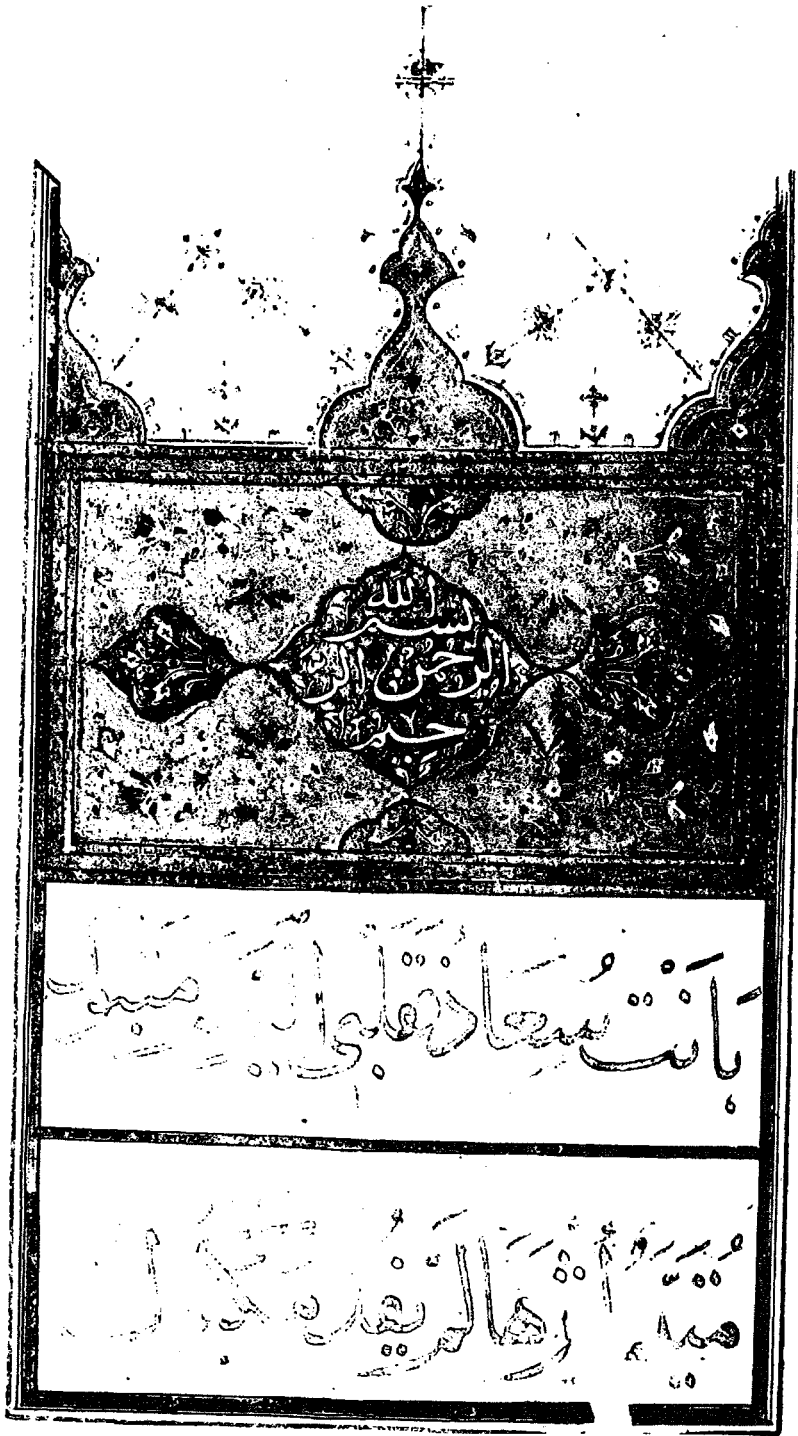 بسم الله
الرحمن الر
حيم
بَانَتْ سُعَادُ فَقَلْبِي الْيَوْمَ مَتْبُولُ
مُتَيَّمٌ إِثْرَهَا لَمْ يُفْدَ مَكْبُولُ